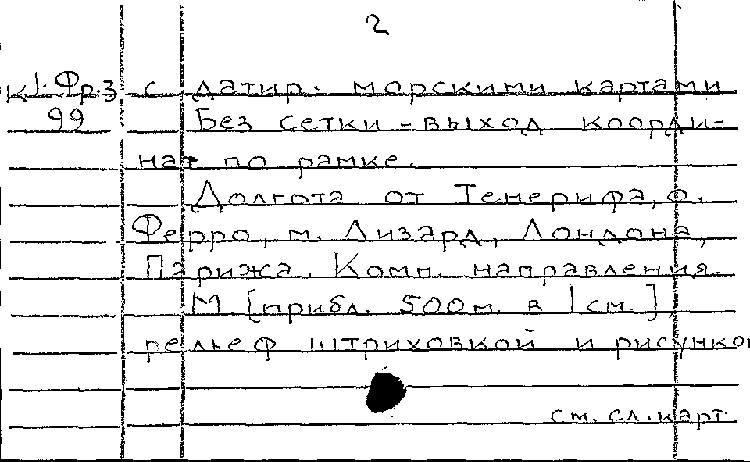 2
К1.Фр.3 с датир. морскими картами
99 Без сетки – выход коорди-
нат по рамке.
Долгота от Тенерифа, о.
Ферро, м. Лизард, Лондона,
Парижа. Комп. направления.
М [прибл. 500м. в 1 см.],
рельеф штриховкой и рисунком
см. сл. карт.